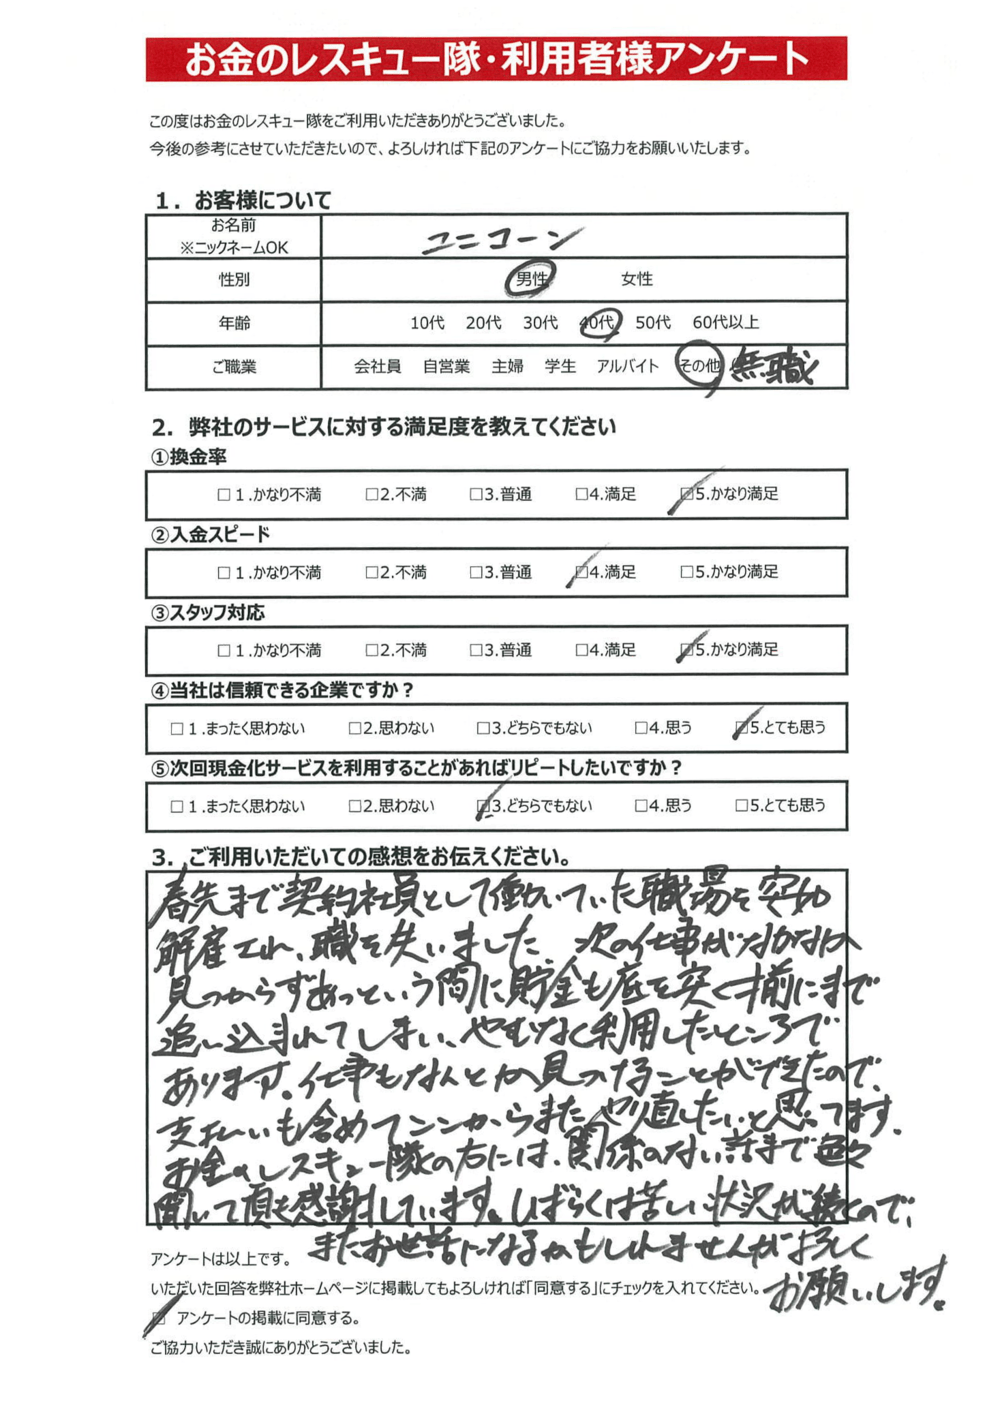 お金のレスキュー隊・利用者様アンケート
この度はお金のレスキュー隊をご利用いただきありがとうございました。
今後の参考にさせていただきたいので、よろしければ下記のアンケートにご協力をお願いいたします。
1. お客様について
お名前
※ニックネームOK
ユニコーン
性別 男性 女性
年齢 10代 20代 30代 40代 50代 60代以上
ご職業 会社員 自営業 主婦 学生 アルバイト その他 無職
2. 弊社のサービスに対する満足度を教えてください
①換金率
□1.かなり不満 □2.不満 □3.普通 □4.満足 ☑5.かなり満足
②入金スピード
□1.かなり不満 □2.不満 □3.普通 ☑4.満足 □5.かなり満足
③スタッフ対応
□1.かなり不満 □2.不満 □3.普通 □4.満足 ☑5.かなり満足
④当社は信頼できる企業ですか？
□1.まったく思わない □2.思わない □3.どちらでもない □4.思う ☑5.とても思う
⑤次回現金化サービスを利用することがあればリピートしたいですか？
□1.まったく思わない □2.思わない ☑3.どちらでもない □4.思う □5.とても思う
3. ご利用いただいての感想をお伝えください。
春先まで契約社員として働いていた職場を突如
解雇され、職を失いました 次の仕事がなかなか
見つからずあっという間に貯金も底を突く寸前にまで
追い込まれてしまい、やむなく利用したところで
あります。仕事もなんとか見つけることができたので、
支払いも含めてシンからまたやり直したいと思ってます。
お金のレスキュー隊の方には、関係のない話まで色々
聞いて頂き感謝しています。しばらくは苦しい状況が続くので、
またお世話になるかもしれませんがよろしく
お願いします。
アンケートは以上です。
いただいた回答を弊社ホームページに掲載してもよろしければ「同意する」にチェックを入れてください。
☑ アンケートの掲載に同意する。
ご協力いただき誠にありがとうございました。